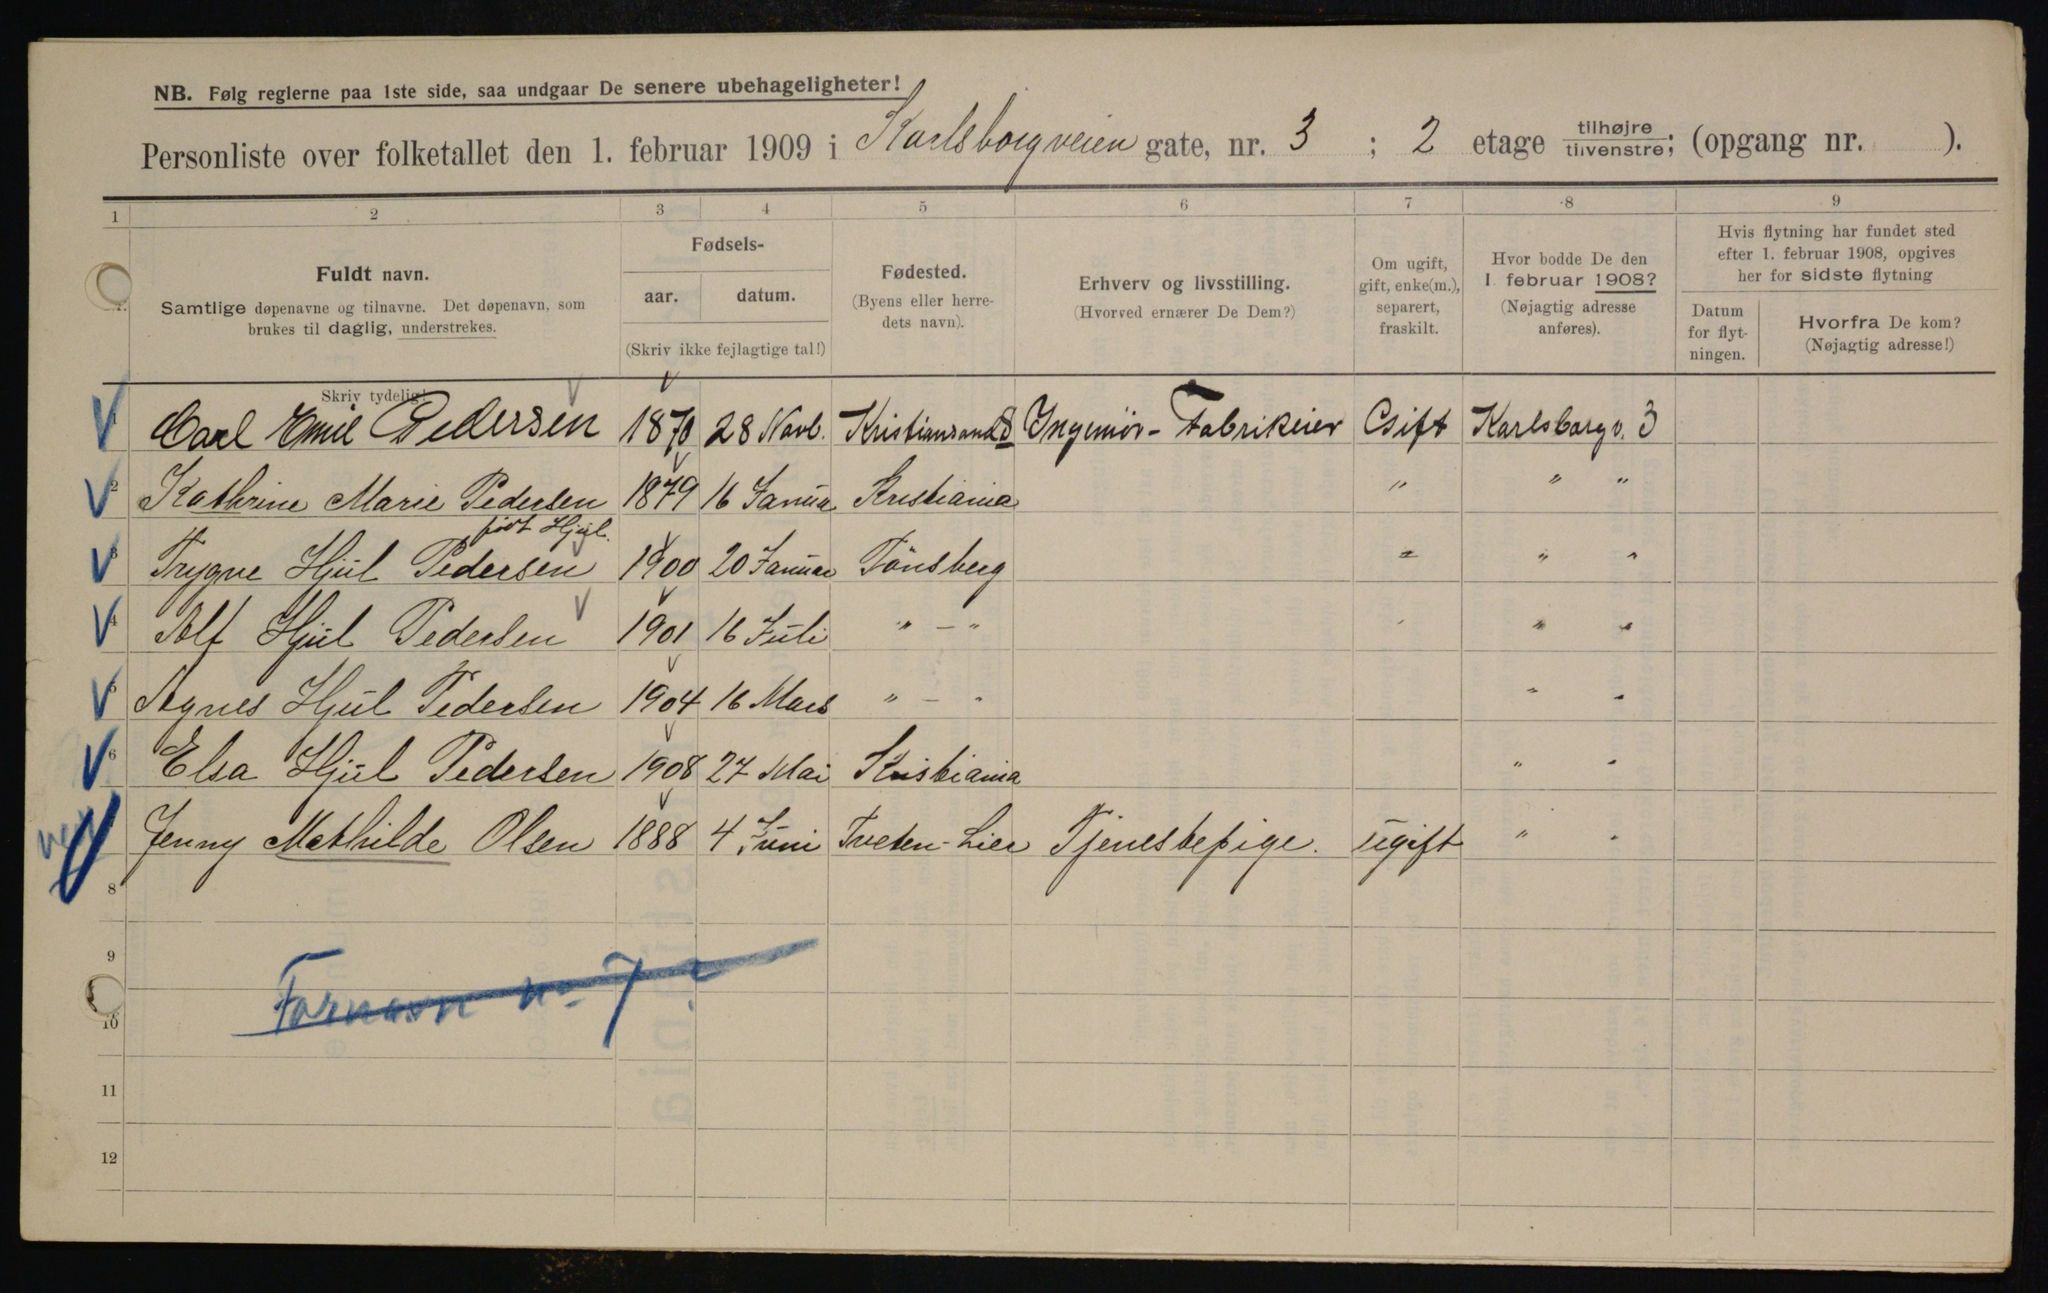 NB. Følg reglerne paa 1ste side, saa undgaar De senere ubehageligheter!
Personliste over folketallet den 1. februar 1909 i Karlsborgveien gate, nr. 3 ; 2 etage tilhøjre / tilvenstre; (opgang nr. ).
1 2 3 4 5 6 7 8 9
Fuldt navn.
Samtlige døpenavne og tilnavne. Det døpenavn, som
brukes til daglig, understrekes.
Skriv tydelig!
Fødsels-
aar. datum.
(Skriv ikke fejlagtige tal!)
Fødested.
(Byens eller herre-
dets navn).
Erhverv og livsstilling.
(Hvorved ernærer De Dem?)
Om ugift,
gift, enke(m.),
separert,
fraskilt.
Hvor bodde De den
1 februar 1908?
(Nøjagtig adresse
anføres).
Hvis flytning har fundet sted
efter 1. februar 1908, opgives
her for sidste flytning
Datum
for flyt-
ningen.
Hvorfra De kom?
(Nøjagtig adresse!)
1 Carl Emil Pedersen 1870 28 Novb. Kristiansand S Ingeniör - Fabrikeier Gift Karlsborgv. 3
2 Kathrine Marie Pedersen 1879 16 Janua Kristiania " " "
født Hjul.
3 Trygve Hjul Pedersen 1900 20 Januar Tönsberg " " "
4 Alf Hjul Pedersen 1901 16 Juli " - " " "
5 Agnes Hjul Pedersen 1904 16 Mars " - " " "
6 Elsa Hjul Pedersen 1908 27 Mai Kristiania " "
Jenny Mathilde Olsen 1888 4 Juni Tveten - Lier Tjenestepige. ugift " "
8
9
Fornavn no 7
10
11
12